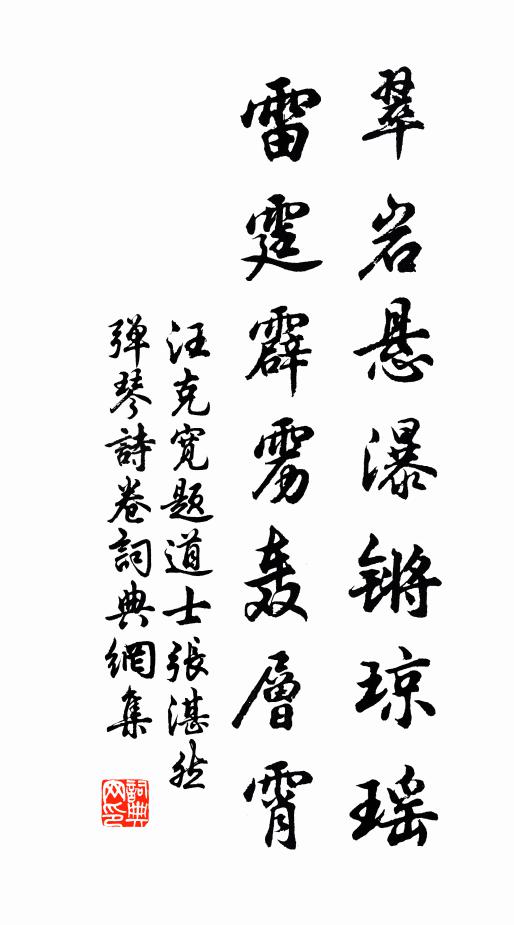 翠岩悬瀑锵琼瑶
雷霆霹雳轰层霄
汪克宽题道士張湛然
弹琴詩卷詞典網集
詞典网印